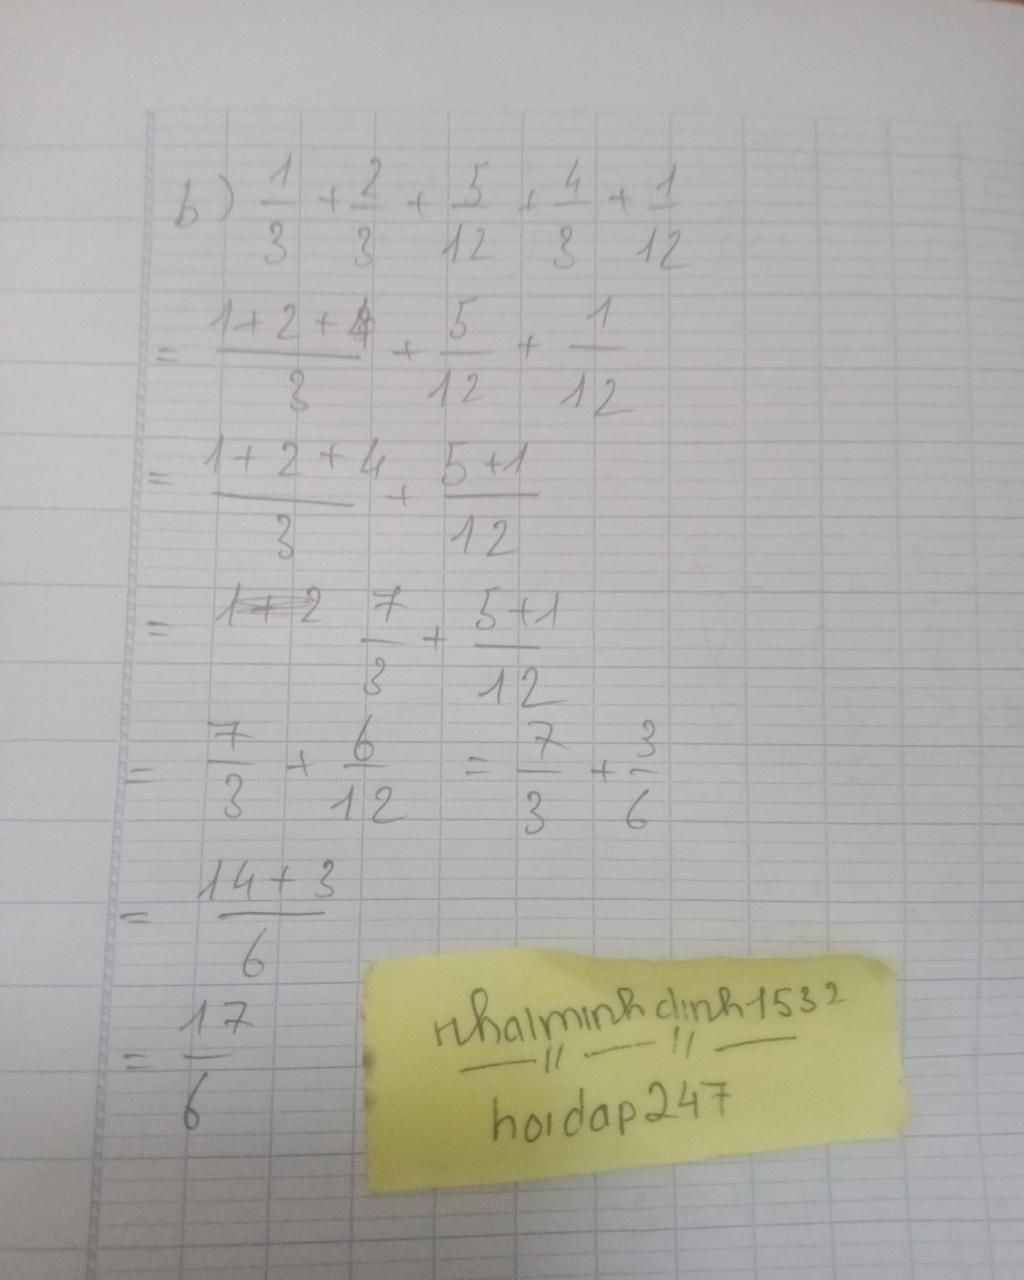 b) 1/3 + 2/3 + 5/12 + 4/3 + 1/12
= (1+2+4)/3 + 5/12 + 1/12
= (1+2+4)/3 + (5+1)/12
= 7/3 + (5+1)/12
= 7/3 + 6/12 = 7/3 + 3/6
= (14+3)/6
= 17/6
nhatminhdinh1532
hoidap247